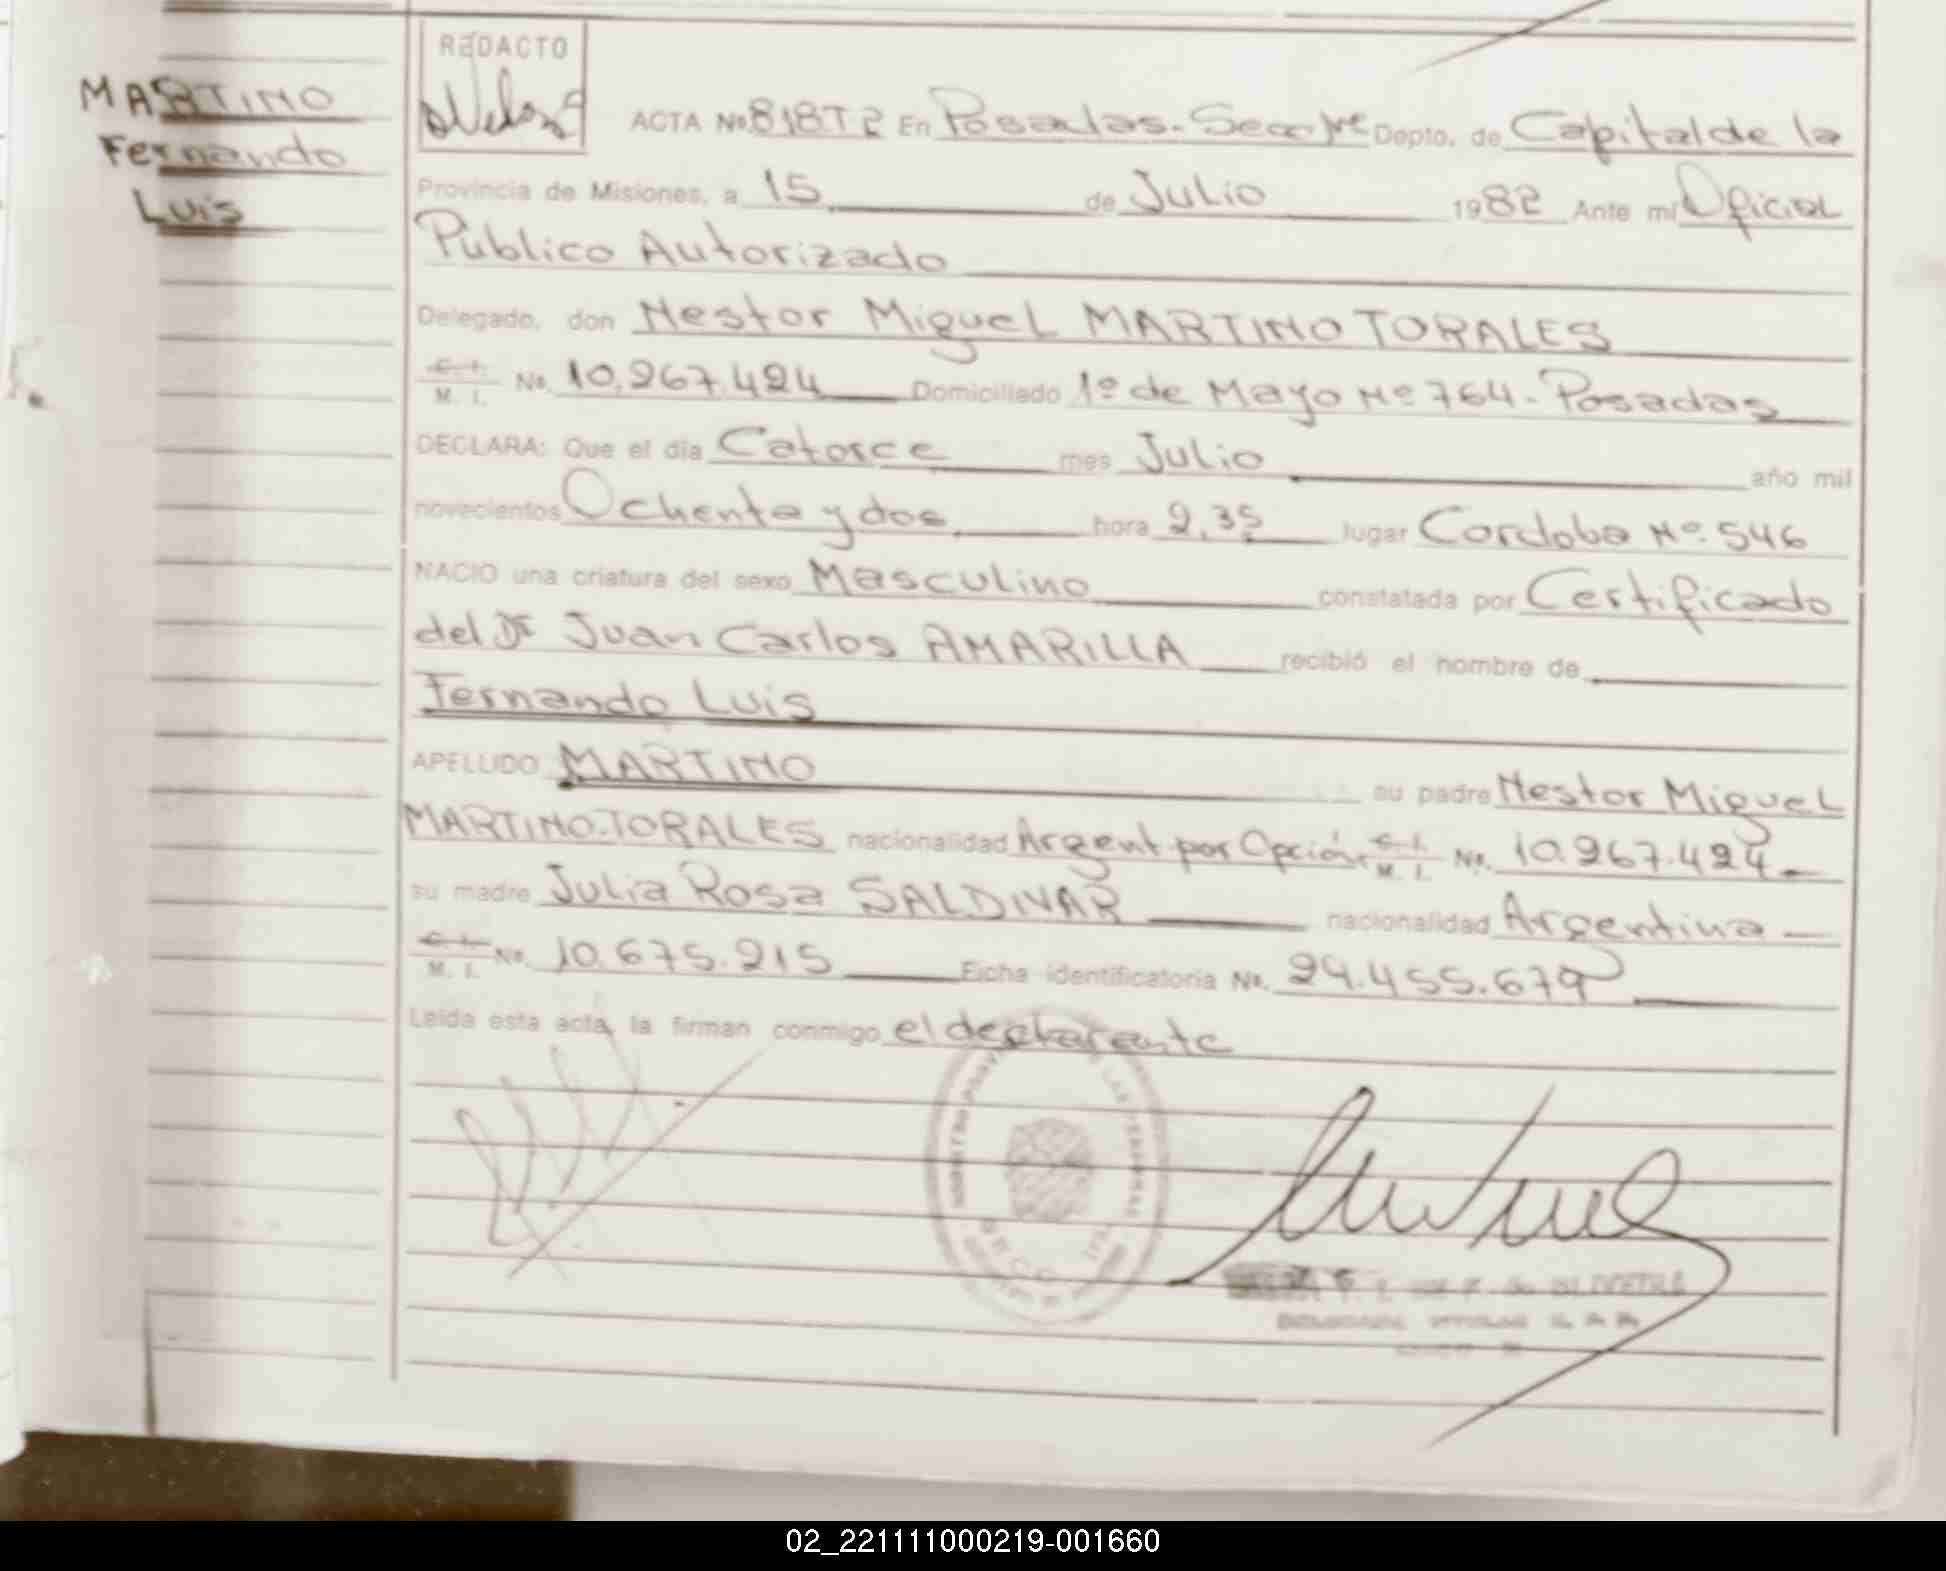 MARTINO
Fernando
Luis
REDACTO
ACTA No. 818T2 En Posadas. Secc 1ra Depto. de Capital de la
Provincia de Misiones, a 15 de Julio 1982 Ante mí Oficial
Público Autorizado
Delegado, don Nestor Miguel MARTINO TORALES
C. I. M. I. No. 10.267.424 Domiciliado 1º de Mayo Nº 764 - Posadas
DECLARA: Que el día Catorce mes Julio año mil
novecientos Ochenta y dos hora 2,35 lugar Cordoba Nº 546
NACIO una criatura del sexo Masculino constatada por Certificado
del Dr Juan Carlos AMARILLA recibió el nombre de
Fernando Luis
APELLIDO MARTINO su padre Nestor Miguel
MARTINO-TORALES nacionalidad Argent por Opción, C. I. M. I. No. 10.267.424
su madre Julia Rosa SALDIVAR nacionalidad Argentina
C. I. M. I. No. 10.675.215 Ficha identificatoria No. 29.455.679
Leída esta acta, la firman conmigo el declarante
02_221111000219-001660